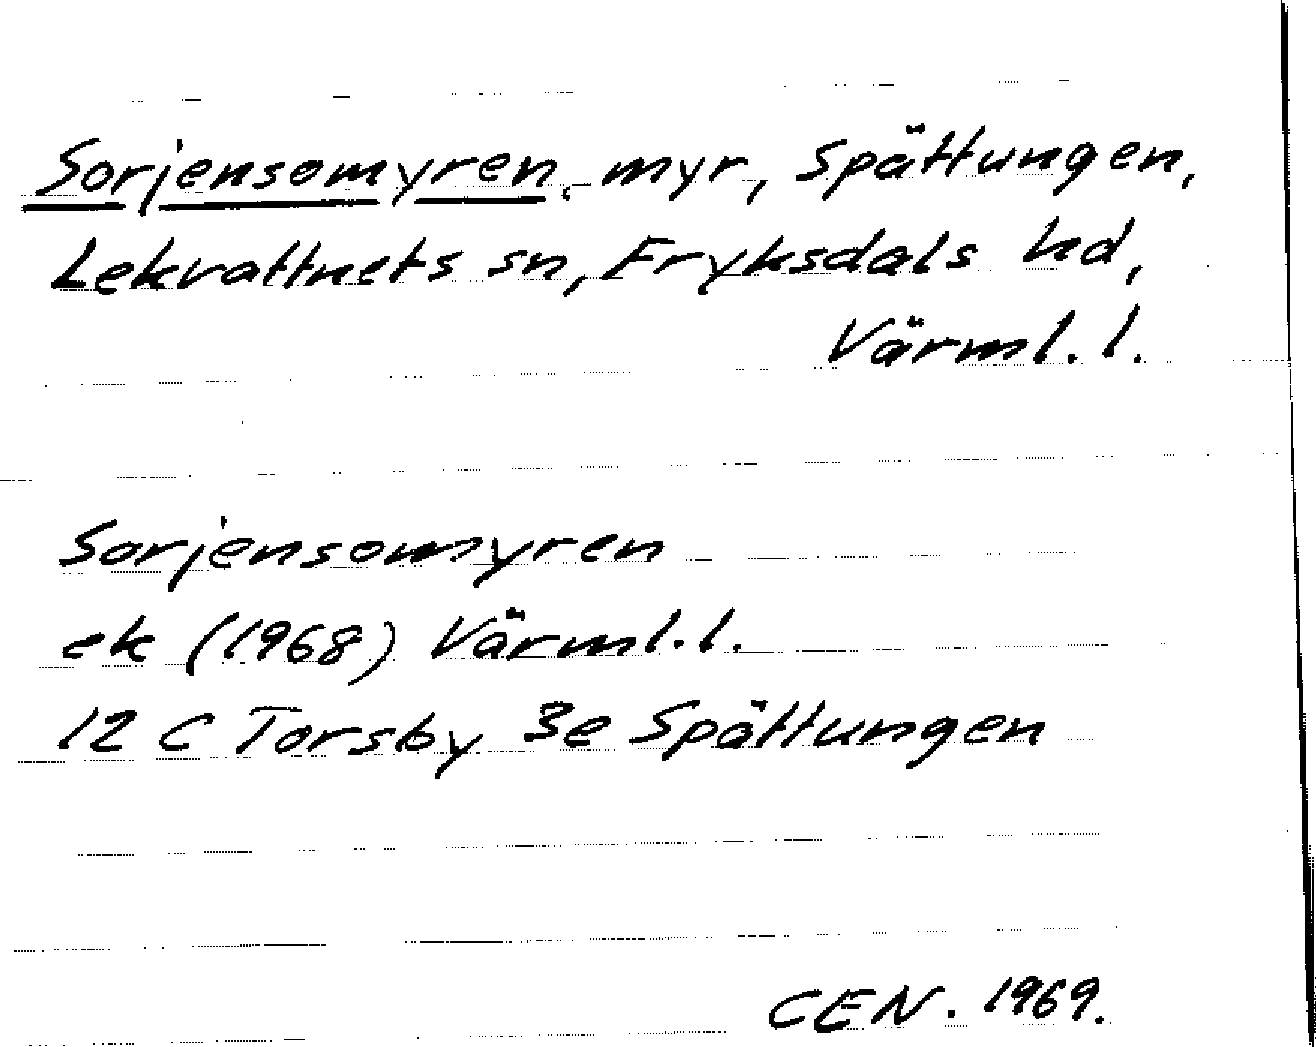 Sorjensomyren, myr, Spättungen,
Lekvattnets sn, Fryksdals hd,
Värml. l.
Sorjensomyren
ek (1968) Värml. l.
12 C Torsby 3e Spättungen
CEN. 1969.